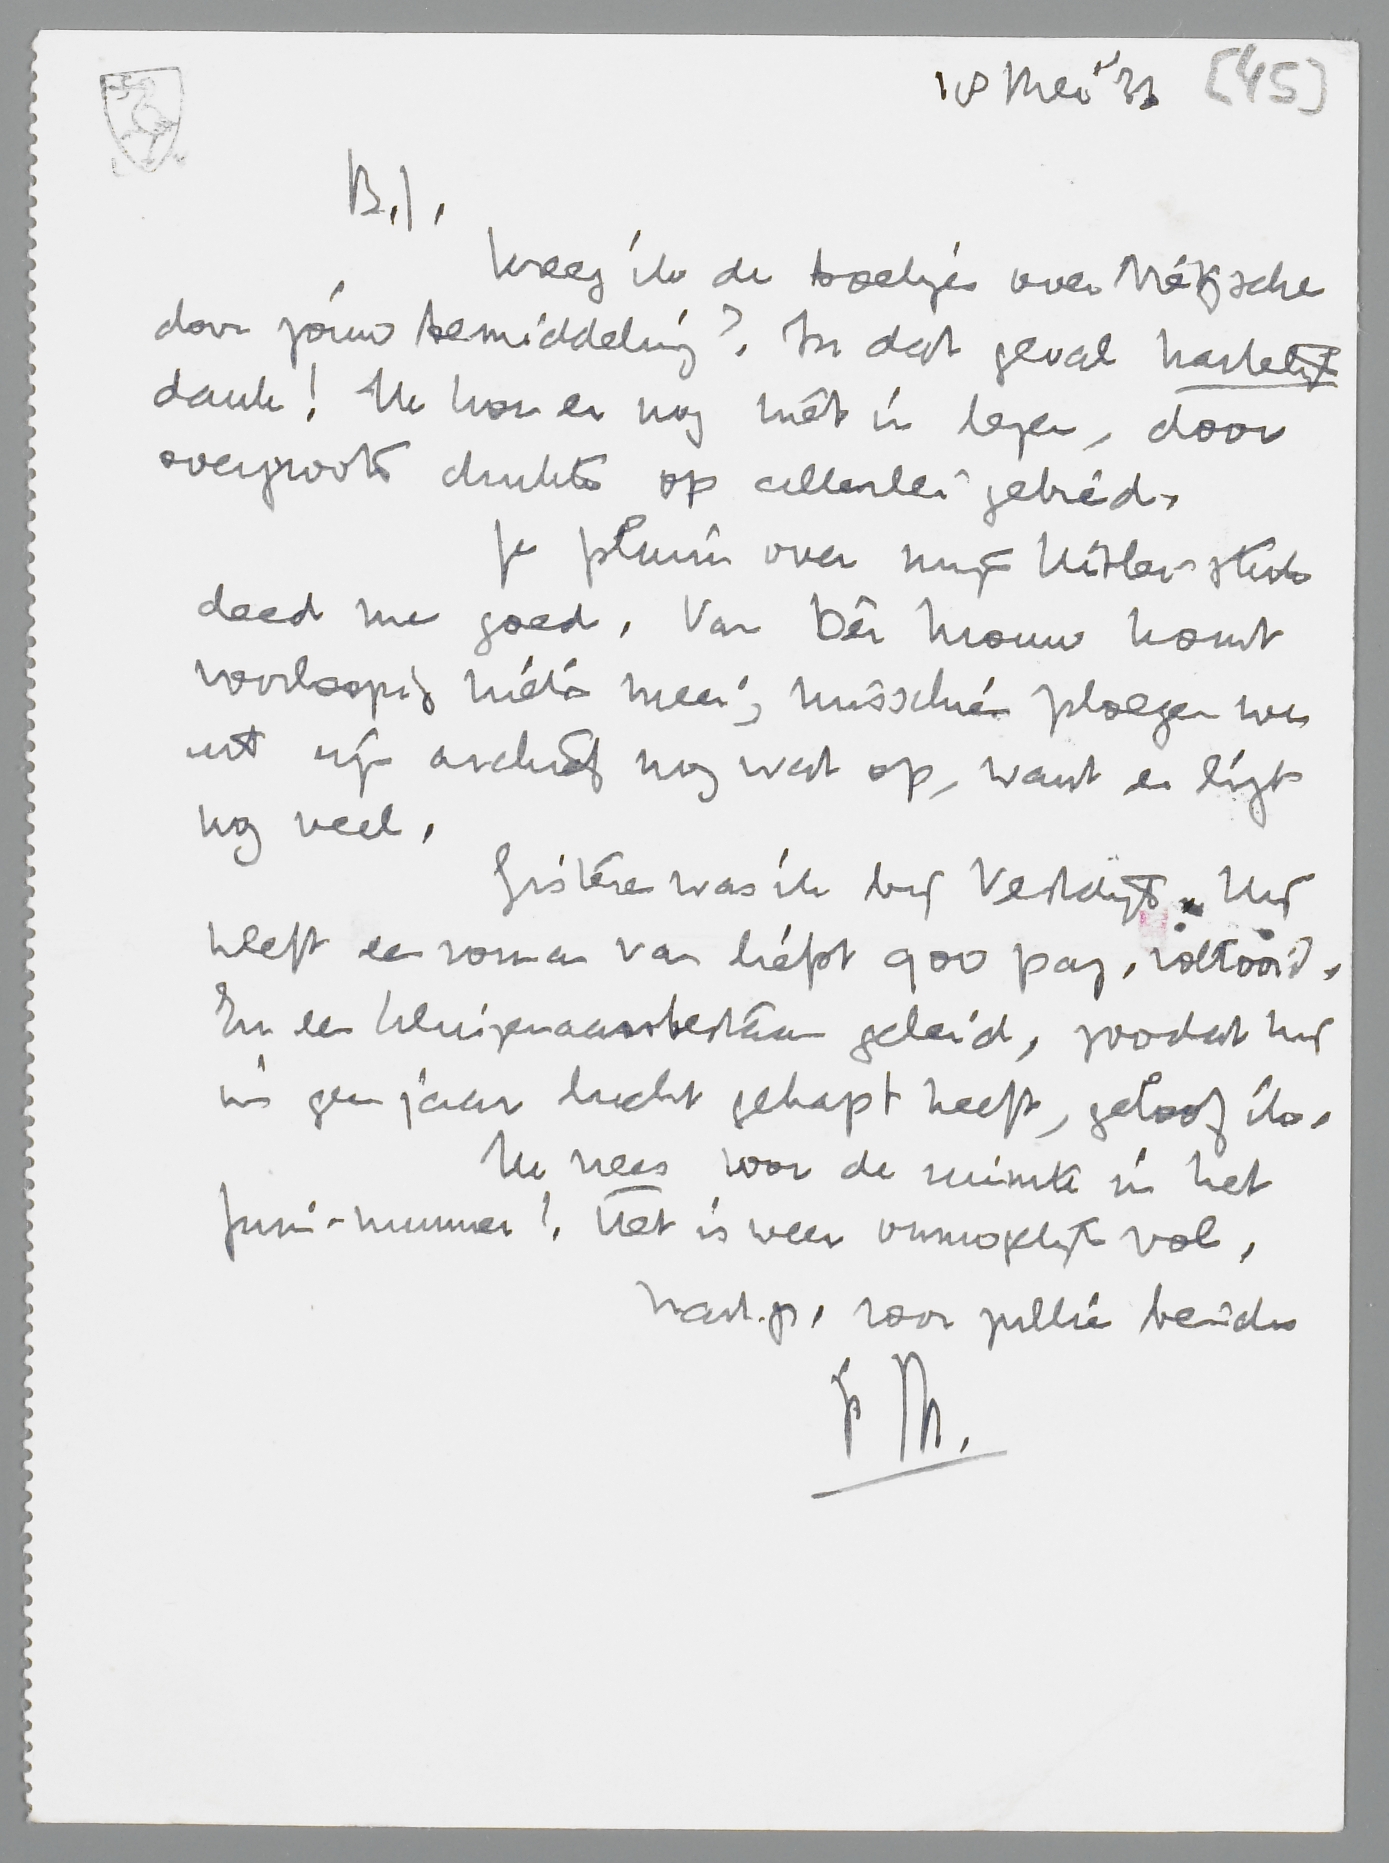 18 Mei '33 [45]
B.J.,
Kreeg ik de boekjes over Nietzsche
door jóuw bemiddeling? In dat geval hartelijk
dank! Ik kon er nog niet in lezen, door
overgroote drukte op allerlei gebied.
Je pluim over mijn Hitler-stuk
deed me goed. Van Bêi komt
voorloopig niets meer; misschien ploegen we
uit zijn archief nog wat op, want er ligt
nog veel.
Gisteren was ik bij Vestdijk. Hij
heeft een roman van liefst 900 pag. voltooid.
En een kluizenaarsbestaan geleid, zoodat hij
in geen jaar lucht gehapt heeft, geloof ik.
Ik vrees voor de ruimte in het
Juni-nummer! Het is weer onmogelijk vol.
hart. gr. voor jullie beiden